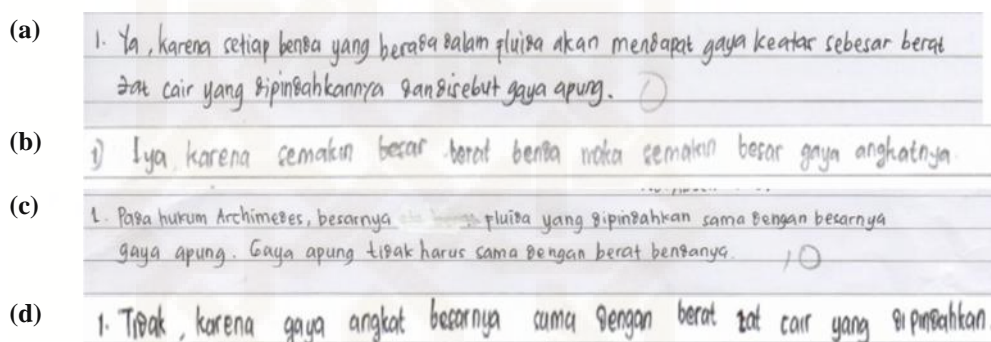 (a)
1. Ya, karena setiap benda yang berada dalam fluida akan mendapat gaya keatas sebesar berat
zat cair yang dipindahkannya dan disebut gaya apung. 0
(b)
1) Iya karena semakin besar berat benda maka semakin besar gaya angkatnya.
(c)
1. Pada hukum Archimedes, besarnya fluida yang dipindahkan sama dengan besarnya
gaya apung. Gaya apung tidak harus sama dengan berat bendanya. 10
(d)
1. Tidak, karena gaya angkat besarnya sama dengan berat zat cair yang dipindahkan.